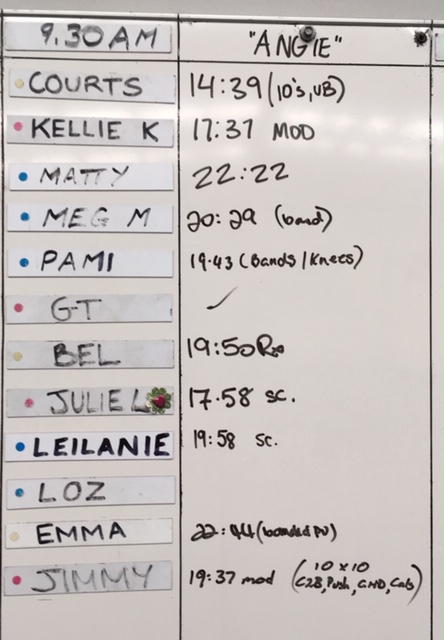 9.30AM "ANGIE"
COURTS 14:39 (10's, UB)
KELLIE K 17:37 MOD
MATTY 22:22
MEG M 20:29 (band)
PAMI 19.43 (Bands/Knees)
GT ✓
BEL 19:50 Rx
JULIE L 17.58 sc.
LEILANIE 19:58 sc.
LOZ
EMMA 22:44 (banded PU)
JIMMY 19:37 mod (10x10
C2B, Push, GHD,